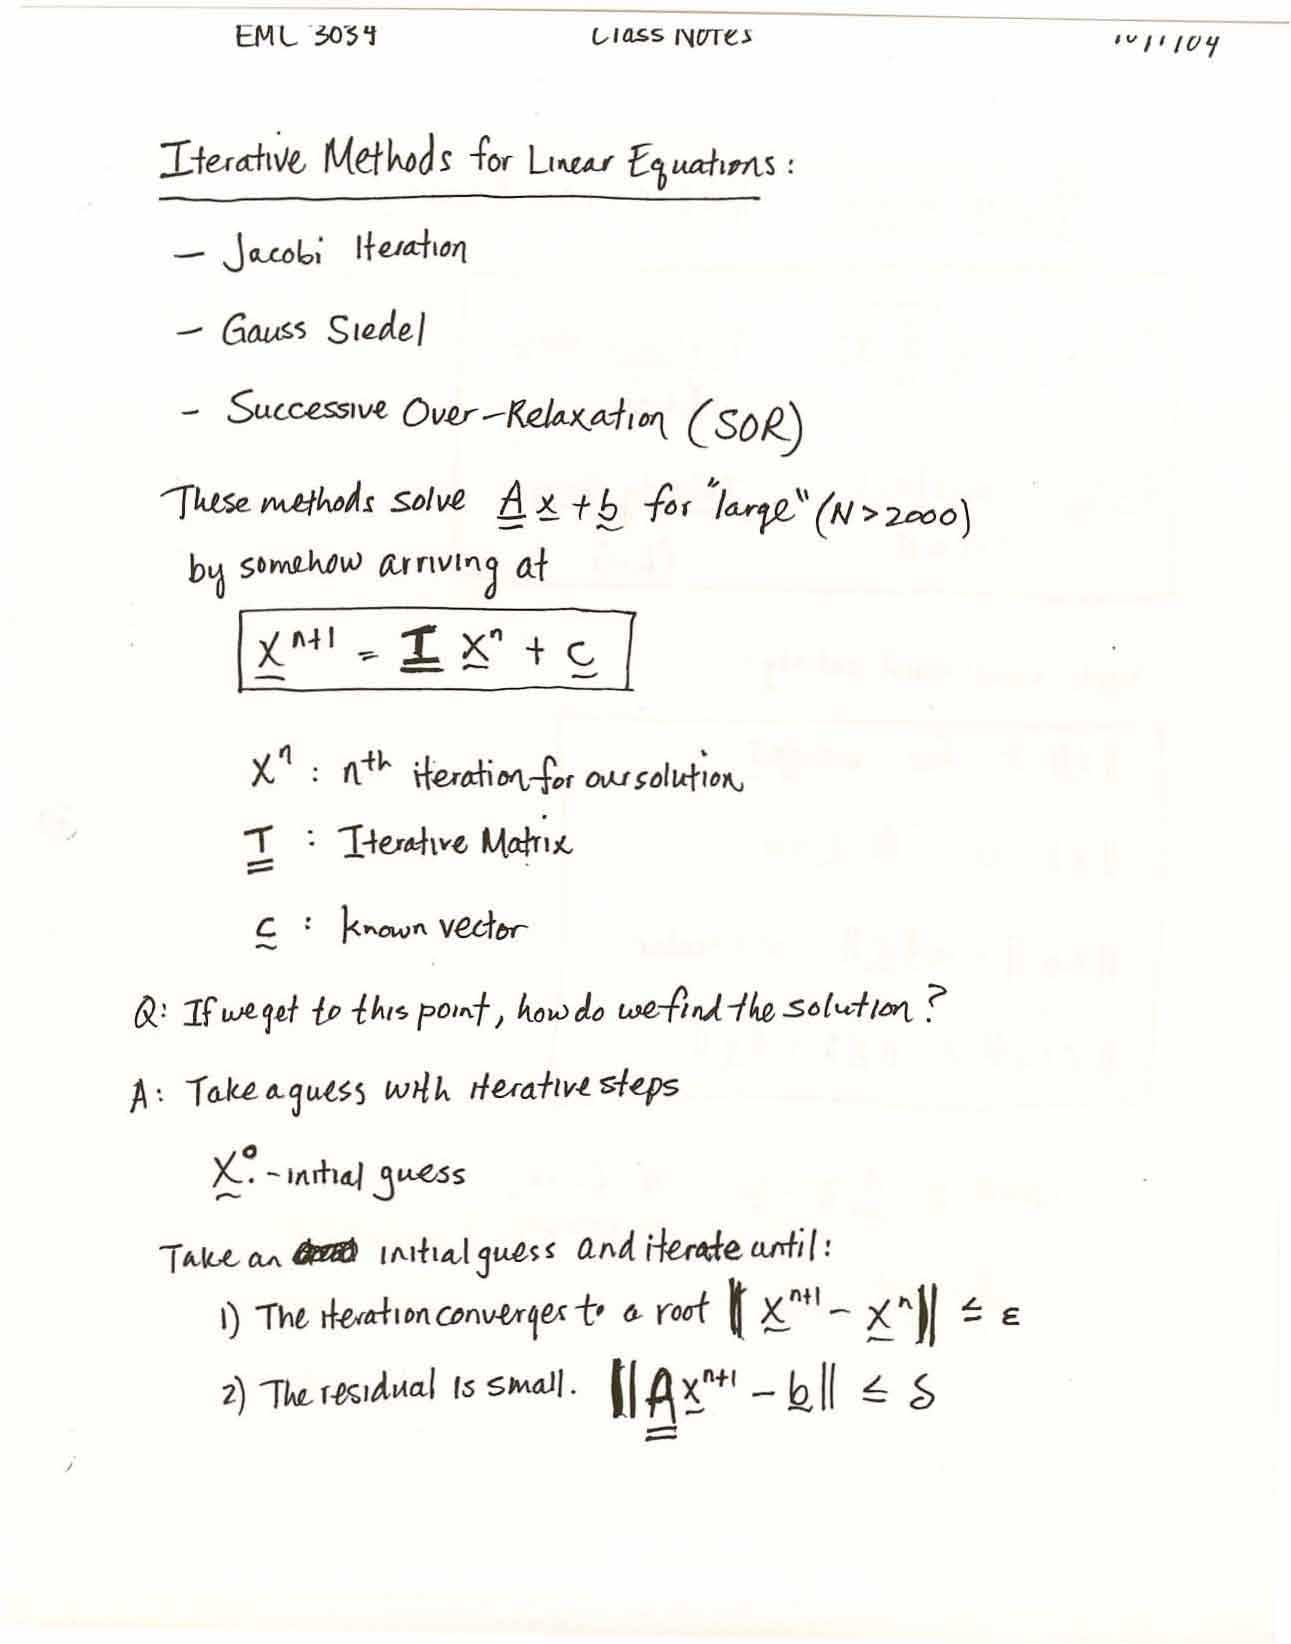 EML 3034 Class Notes
Iterative Methods for Linear Equations:
– Jacobi Iteration
– Gauss Siedel
- Successive Over-Relaxation (SOR)
These methods solve A x + b for "large" (N > 2000)
by somehow arriving at
x^{n+1} = I x^n + c
x^n : n^th iteration for our solution
I : Iterative Matrix
c : known vector
Q: If we get to this point, how do we find the solution?
A: Take a guess with iterative steps
x^0. - initial guess
Take an initial guess and iterate until:
1) The iteration converges to a root || x^{n+1} - x^n || ≤ ε
2) The residual is small. || A x^{n+1} - b || ≤ δ